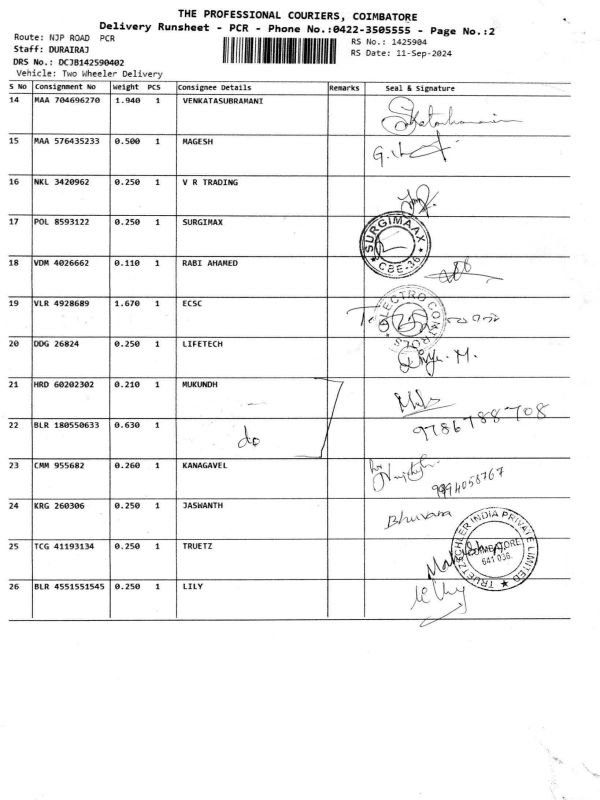 THE PROFESSIONAL COURIERS, COIMBATORE
Delivery Runsheet - PCR - Phone No.:0422-3505555 - Page No.:2
Route: NJP ROAD PCR
RS No.: 1425904
Staff: DURAIRAJ
RS Date: 11-Sep-2024
DRS No.: DCJB142590402
Vehicle: Two Wheeler Delivery
S No Consignment No Weight PCS Consignee Details Remarks Seal & Signature
14 MAA 704696270 1.940 1 VENKATASUBRAMANI
15 MAA 576435233 0.500 1 MAGESH
16 NKL 3420962 0.250 1 V R TRADING
17 POL 8593122 0.250 1 SURGIMAX
SURGIMAAX
CBE-36
18 VDM 4026662 0.110 1 RABI AHAMED
19 VLR 4928689 1.670 1 ECSC
20 DDG 26824 0.250 1 LIFETECH
21 HRD 60202302 0.210 1 MUKUNDH
22 BLR 180550633 0.630 1 do 9786788708
23 CMM 955682 0.260 1 KANAGAVEL
9994058767
24 KRG 260306 0.250 1 JASWANTH Bhuvana
25 TCG 41193134 0.250 1 TRUETZ
TRUETZSCHLER INDIA PRIVATE LIMITED
COIMBATORE
641 036.
26 BLR 4551551545 0.250 1 LILY